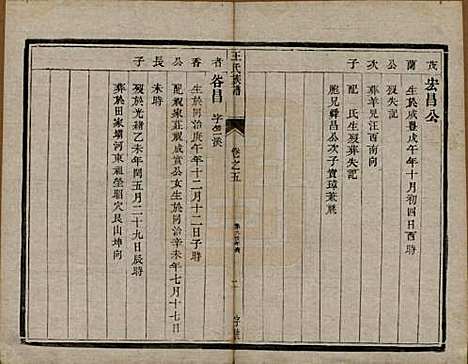 茂 宏昌公
蘭 生於咸豐戊午年十月初四日酉時
公 歿失記
次 葬羊兒汪西南向
子 配 氏生歿葬失記
胞兄舜昌公次子賣璋兼祧
王氏族譜 卷之五
香 谷昌
者 生於同治庚午年十二月十二日子時
公 配親家莊親成賓公女生於同治辛未年七月十七日
長 未時
子 歿於光緒乙未年閏五月二十九日辰時
葬於田家壩河東祖塋廟穴艮山坤向